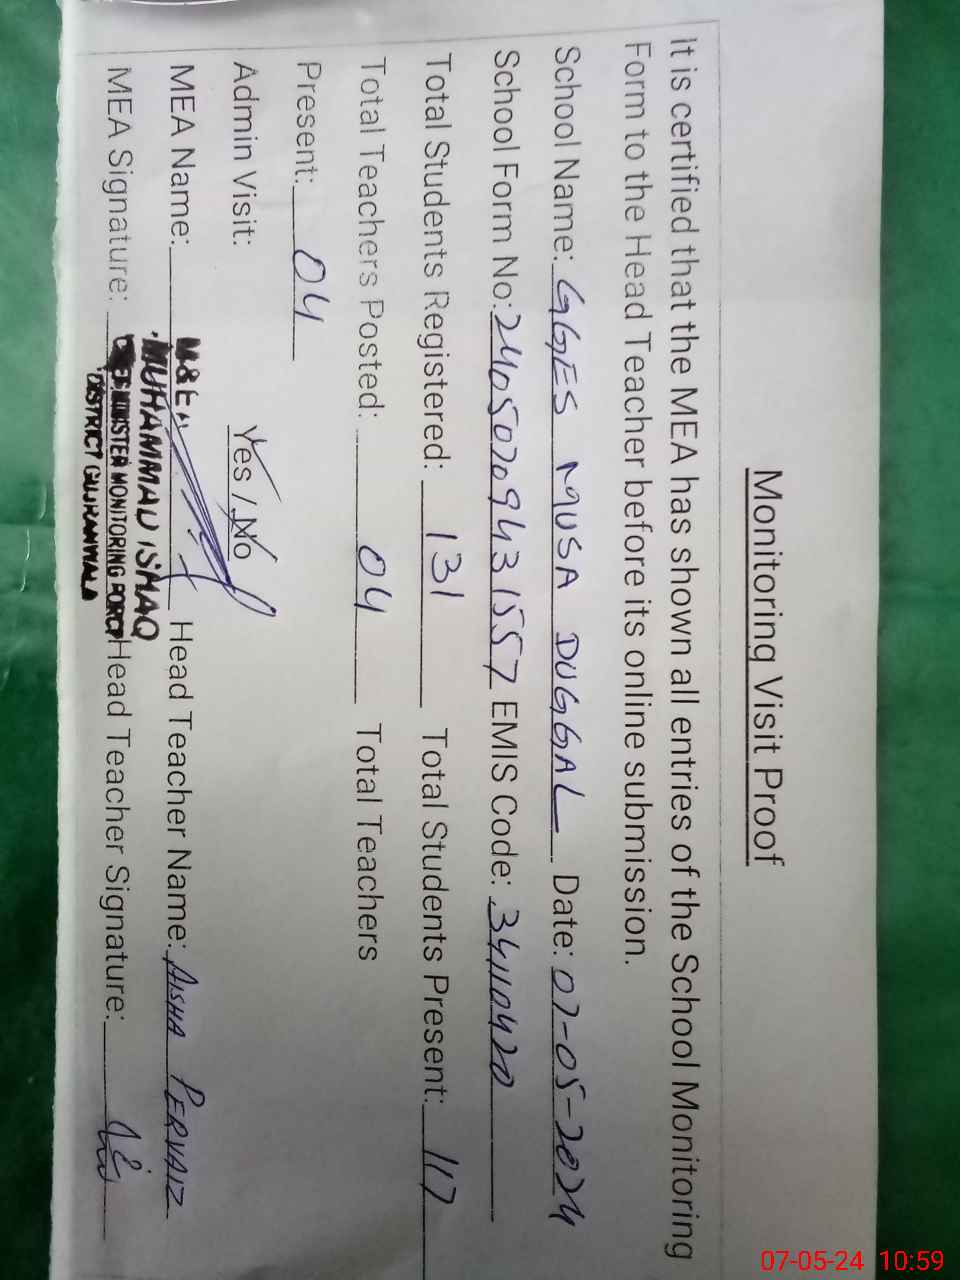 Monitoring Visit Proof
It is certified that the MEA has shown all entries of the School Monitoring
Form to the Head Teacher before its online submission.
School Name: GGES MUSA DUGGAL Date: 07-05-2024
School Form No: 24050709431557 EMIS Code: 34110420
Total Students Registered: 131 Total Students Present: 117
Total Teachers Posted: 04 Total Teachers
Present: 04
Admin Visit: Yes / No
MEA Name: Head Teacher Name: AISHA PERVAIZ
MEA Signature: Head Teacher Signature:
MUHAMMAD ISHAQ
MINISTER MONITORING FORCE
DISTRICT GUJRANWALA
07-05-24 10:59